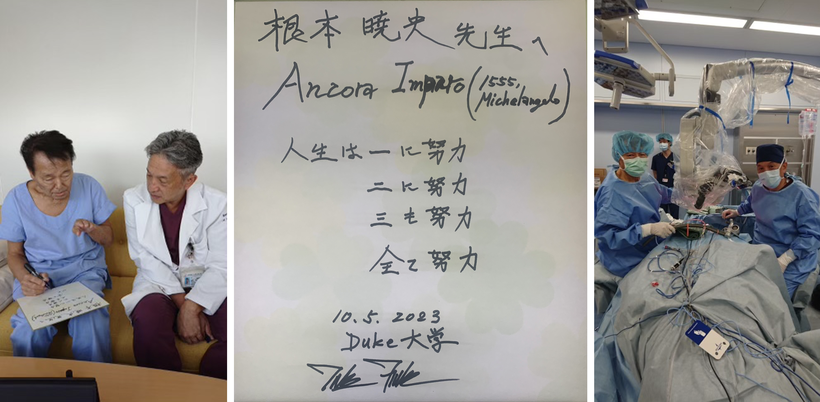 根本 暁史 先生へ
Ancora Imparo (1555, Michelangelo)
人生は一に努力
二に努力
三も努力
全て努力
10.5.2023
Duke大学